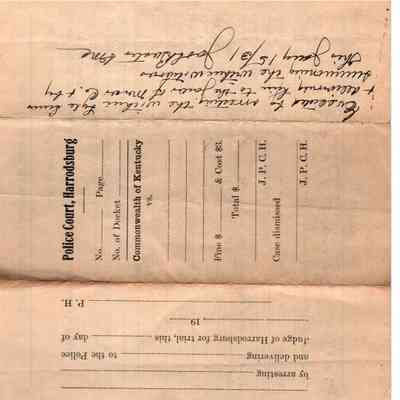 Executed by arresting the within Lyle Sims
& delivering him to the Jailer of Mercer Co. & by
summoning the within witness
This Jany 15/31
Police Court, Harrodsburg
No. Page
No. of Docket
Commonwealth of Kentucky
vs.
Fine $ & Cost $3.
Total $
J. P. C. H.
Case dismissed
J. P. C. H.
by arresting
and delivering to the Police
Judge of Harrodsburg for trial, this, day of
19
P. H.